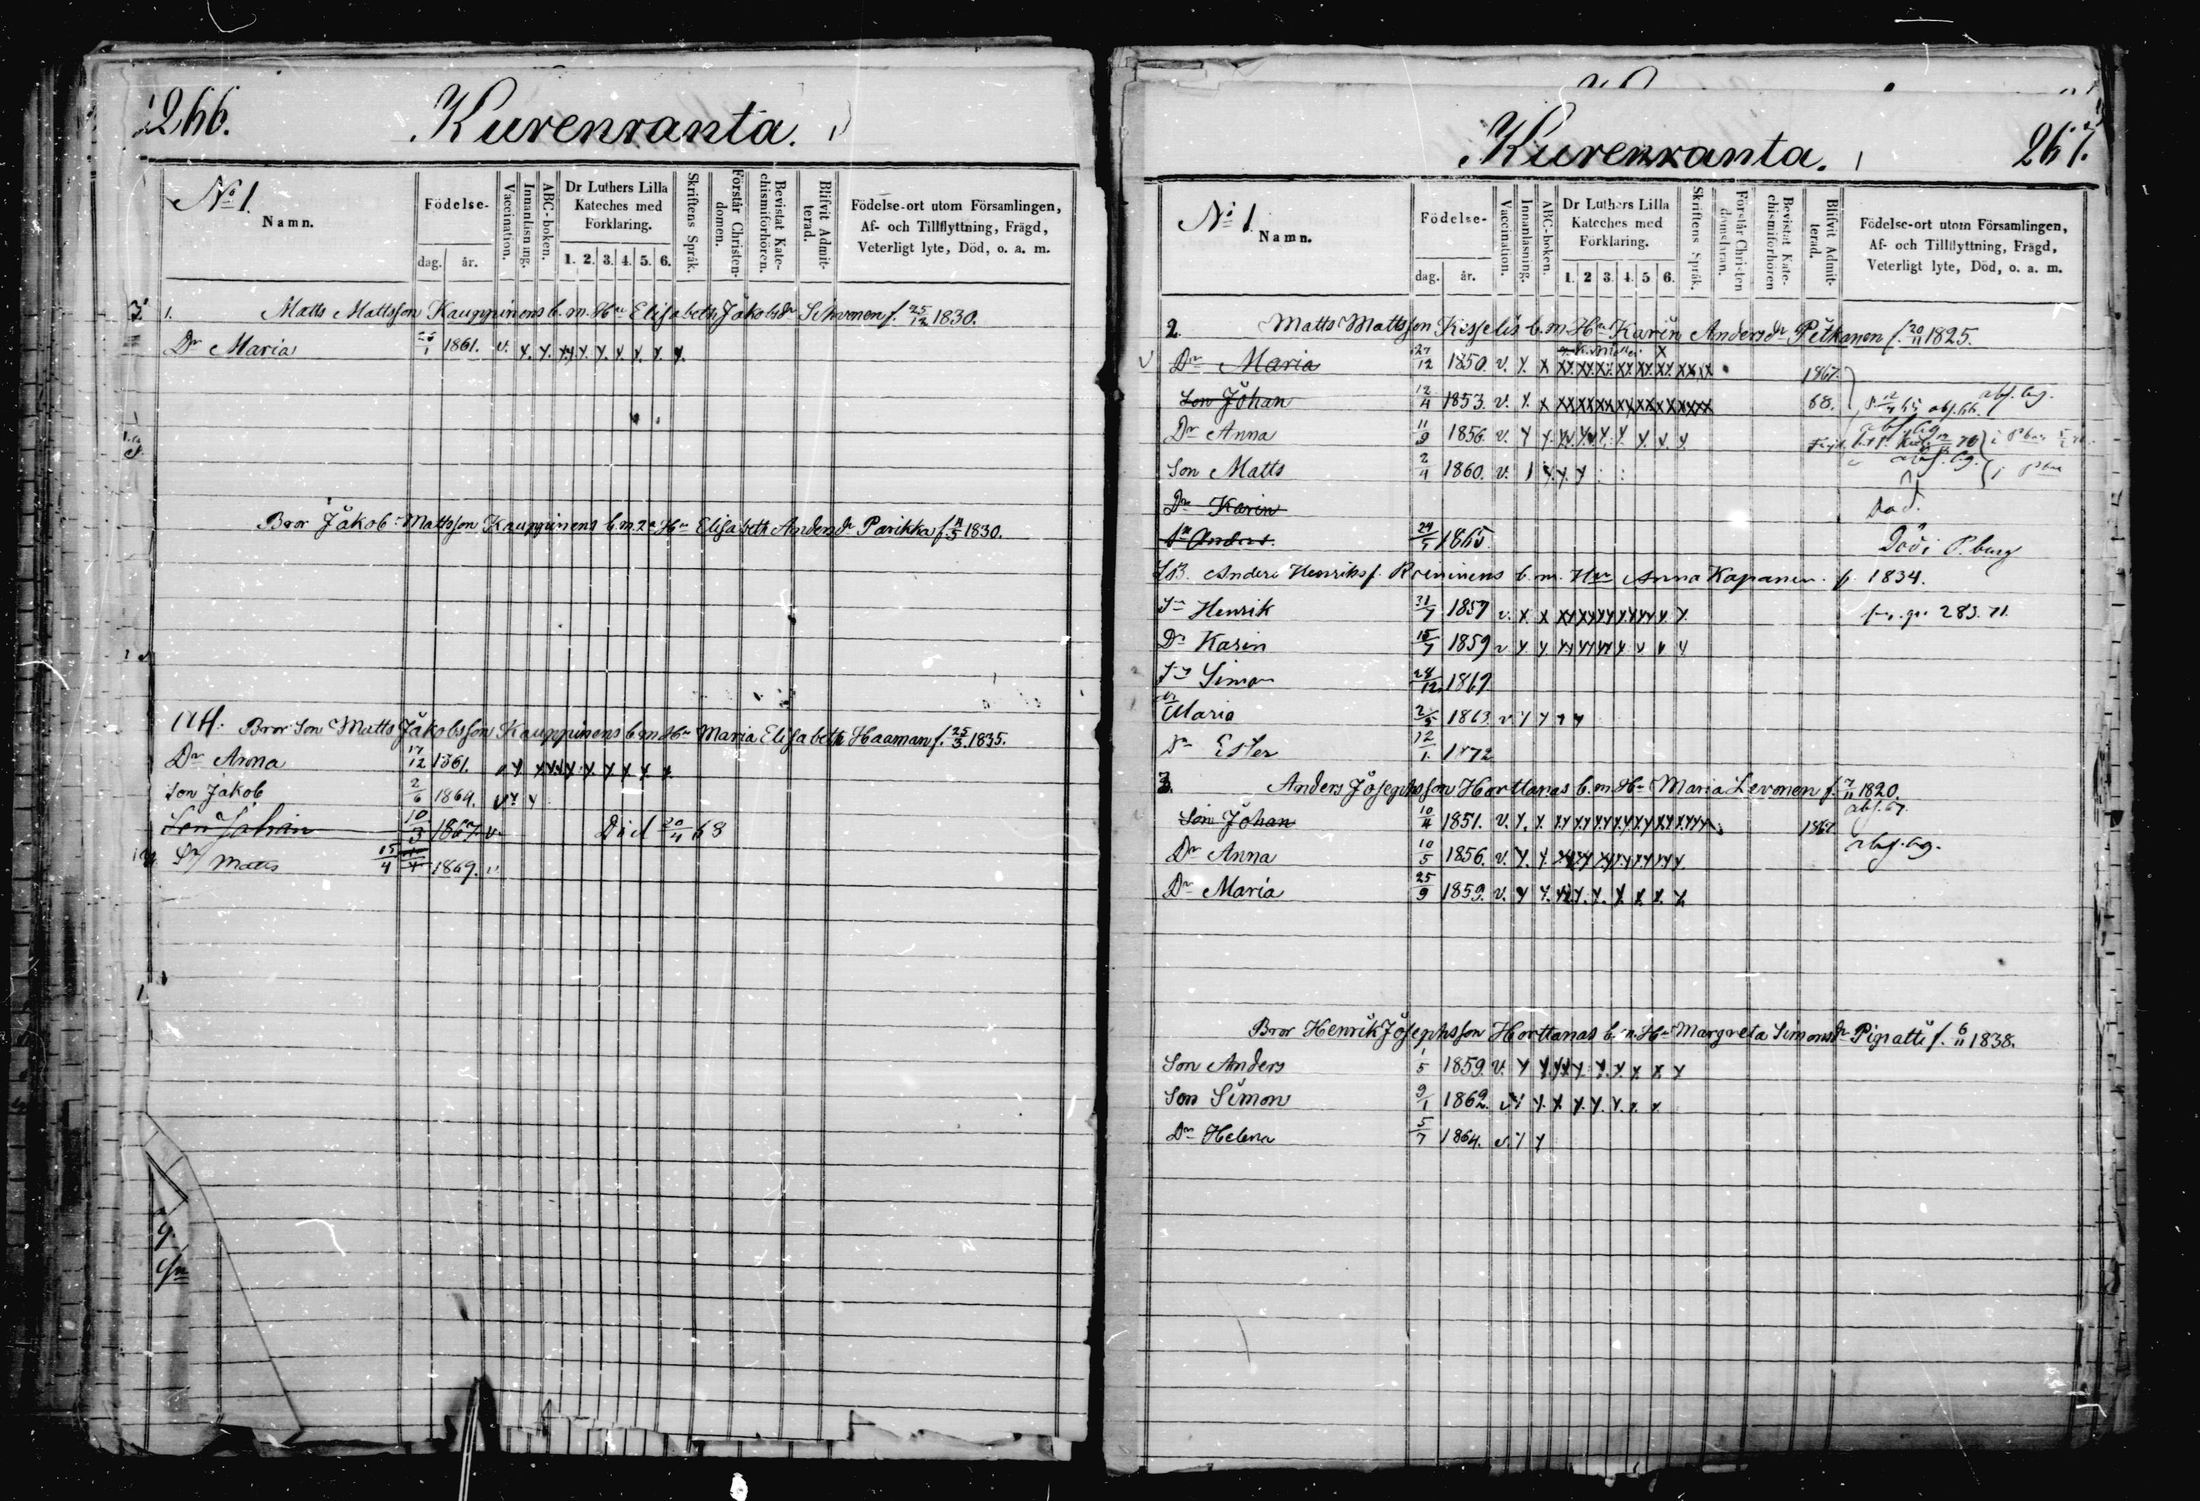 266.
Kurenranta.
No 1.
Namn.
Födelse-
dag. år.
Vaccination.
Innanläsning.
ABC-boken.
Dr Luthers Lilla Kateches med Förklaring.
1. 2. 3. 4. 5. 6.
Skriftens Språk.
Förstår Christendomen.
Bevistat Katechismiförhören.
Blifvit Admitterad.
Födelse-ort utom Församlingen,
Af- och Tillflyttning, Frägd,
Veterligt lyte, Död, o. a. m.
1. Matts Mattsson Kauppinens b. m. Hu Elisabeth Jakobsdr Sihvonen f. 25/12 1830.
Dr Maria 1861. v.
Bror Jakob Mattsson Kauppinens b. m. 2a Hu Elisabeth Andersdr Parikka f. 1830.
Bror Son Matts Jakobsson Kauppinens b m Hu Maria Elisabeth Haaman f. 25/3 1835.
Dr Anna 17/12 1861.
Son Jakob 2/6 1864. v
Son Johan 10/3 1867 v Död 20/4 68
Sn Matts 15/4 1869. v
267.
Kurenranta.
No 1.
Namn.
Födelse-
dag. år.
Vaccination.
Innanläsning.
ABC-boken.
Dr Luthers Lilla Kateches med Förklaring.
1. 2 3. 4. 5 6.
Skriftens Språk.
Förstår Christendomsläran.
Bevistat Katechismiförhören
Blifvit Admitterad.
Födelse-ort utom Församlingen,
Af- och Tillflyttning, Frägd,
Veterligt lyte, Död, o. a. m.
2. Matts Mattsson Kisselis b. m. Hu Karin Andersdr Pitkanen f. 20/11 1825.
Dr Maria 27/12 1850. v. 1867.
Son Johan 12/4 1853. v. 68. abs. 66. abs. 69.
Dr Anna 11/9 1856. v.
Son Matts 2/4 1860. v.
Dr Karin Död.
Sn Anders 24/5 1865. Död i P.burg
Anders Henrikss. Roeninens b. m. Hu Anna Kapanen f. 1834.
Sn Henrik 31/7 1857 v. 283. 71.
Dr Karin 15/7 1859 v
Sn Simon 24/12 1867
Dr Maria 2/5 1863. v
Dr Ester 12/1 1872
3. Anders Josephsson Horttanas b. m Hu Maria Levonen f. 7/11 1820.
Son Johan 10/4 1851. v. 1867. abs. 67.
Dr Anna 10/5 1856. v. abs. 69.
Dr Maria 25/9 1859. v.
Bror Henrik Josephsson Horttanas b. m. Hu Margreta Simonsdr Pigatti f. 6/11 1838.
Son Anders 1/5 1859. v.
Son Simon 9/1 1862. v
Dr Helena 5/7 1864. v.